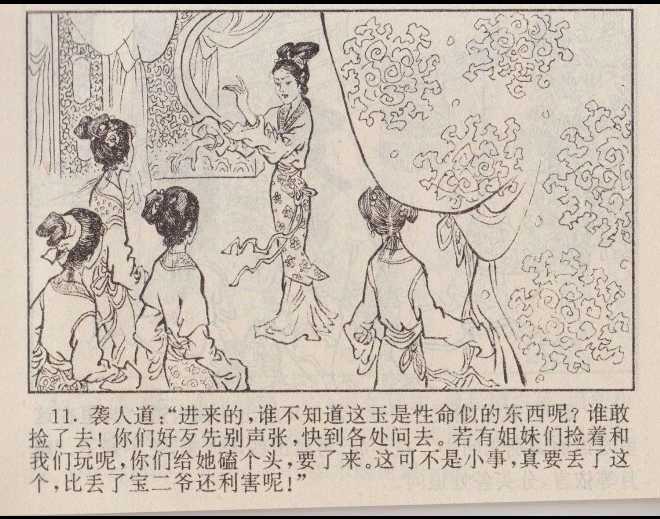 11. 袭人道:“进来的,谁不知道这玉是性命似的东西呢?谁敢
捡了去!你们好歹先别声张,快到各处问去。若有姐妹们捡着和
我们玩呢,你们给她磕个头,要了来。这可不是小事,真要丢了这
个,比丢了宝二爷还利害呢!”